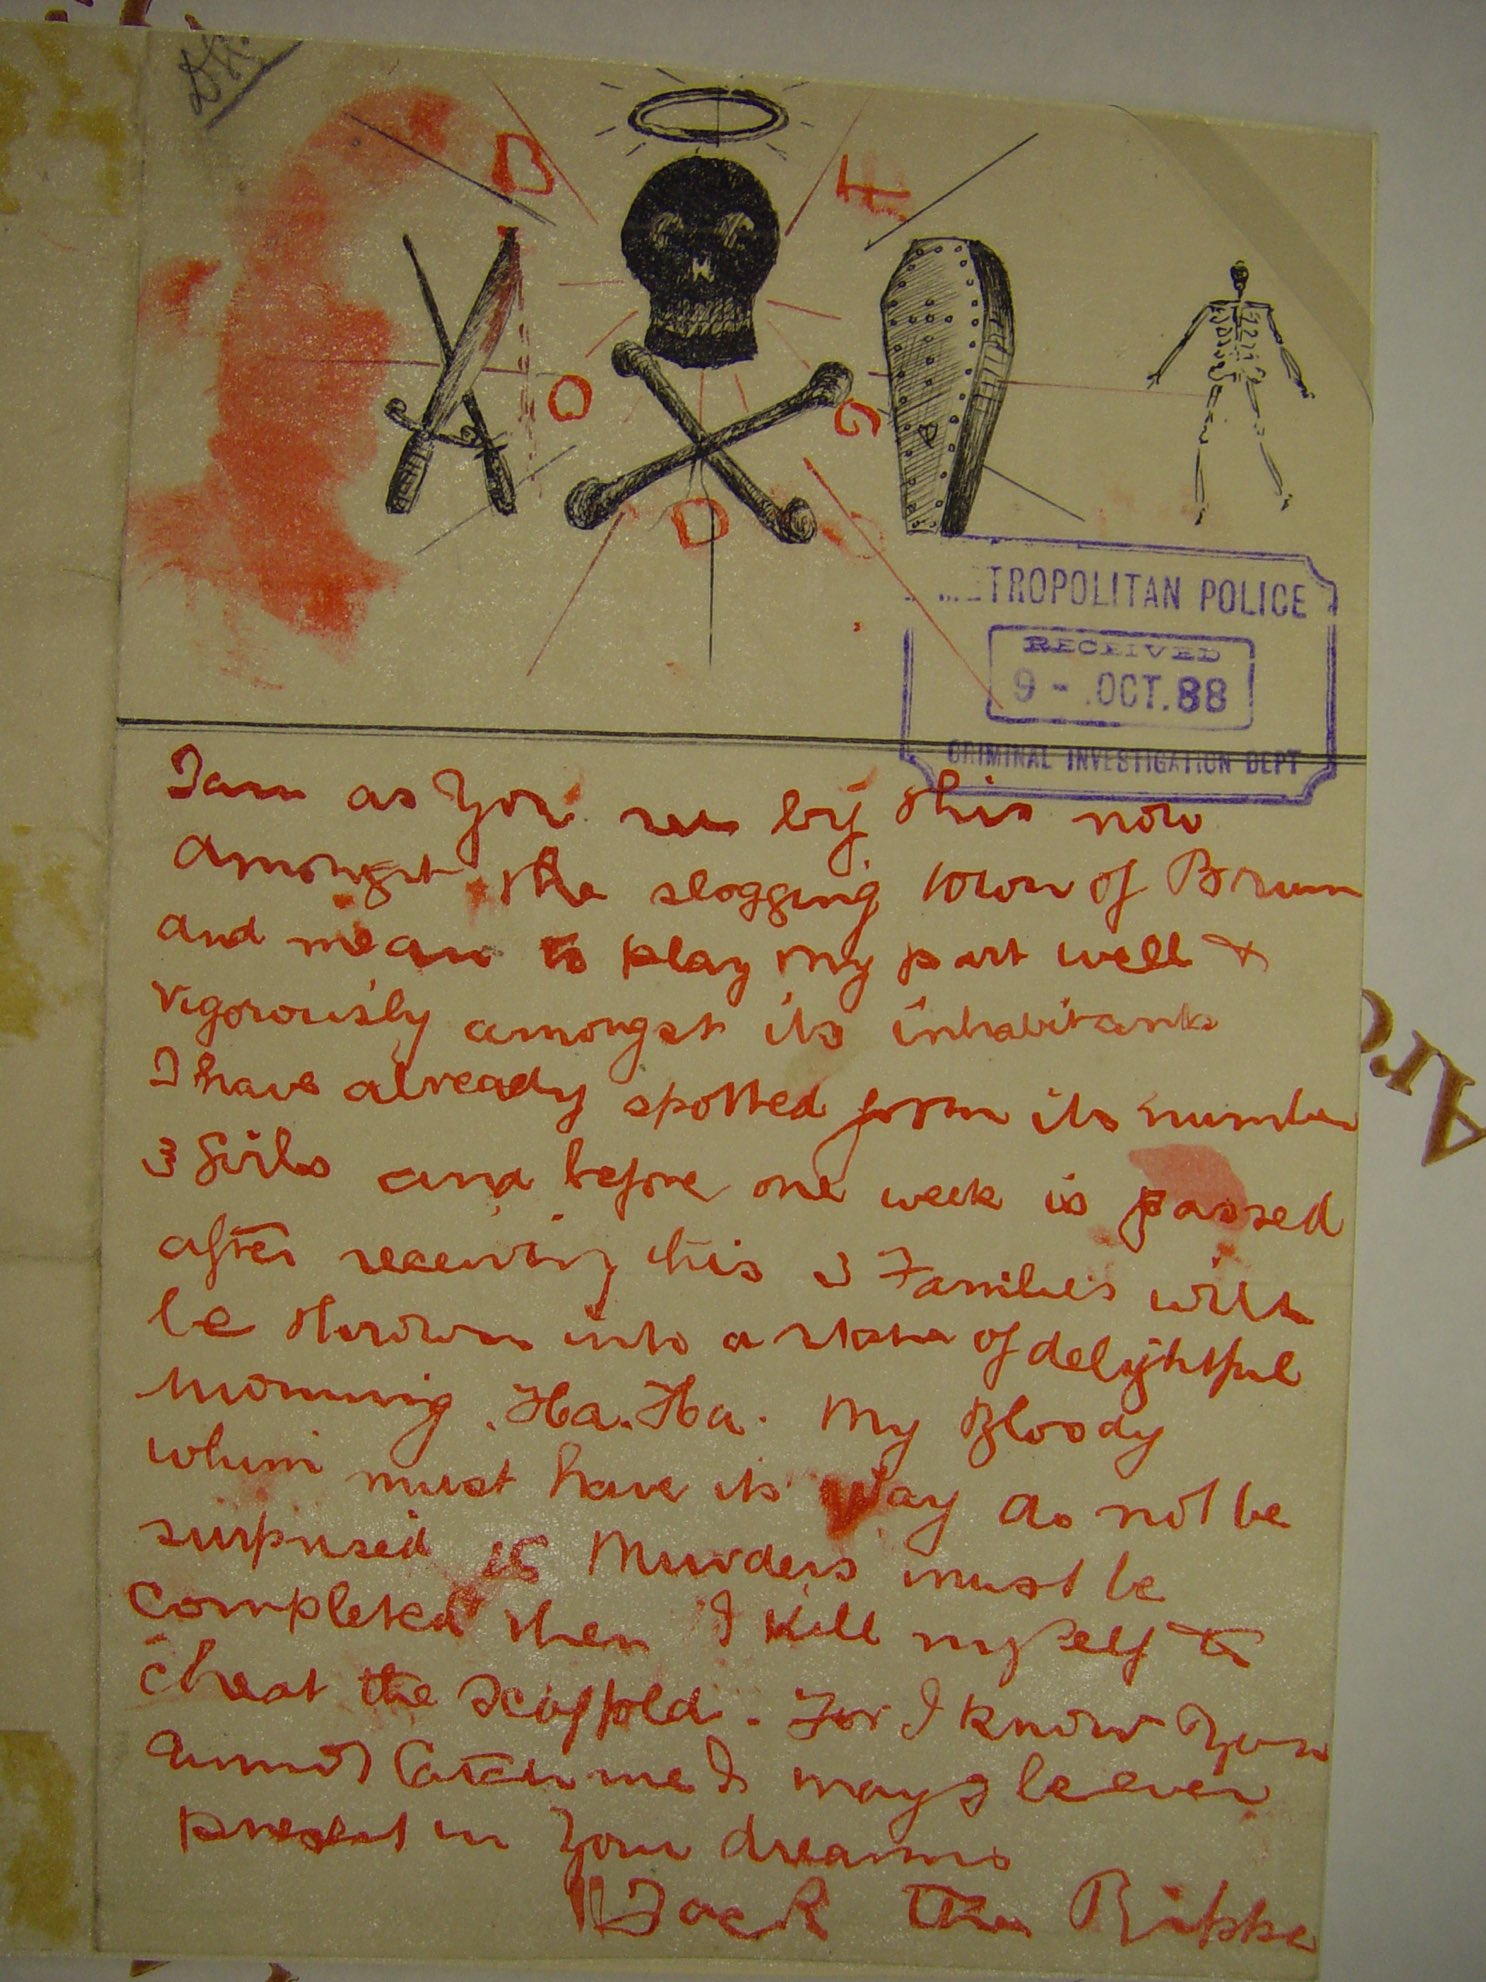 B
H
O
G
D
D
TROPOLITAN POLICE
RECEIVED
9 - OCT. 88
CRIMINAL INVESTIGATION DEPT
I am as you see by this now
amongst the slogging town of Brum
and mean to play my part well &
vigorously amongst its inhabitants
I have already spotted from its number
3 Girls and before one week is passed
after receiving this 3 Families will
be thrown into a state of delightful
mourning. Ha. Ha. My Bloody
whim must have its way do not be
surprised 15 Murders must be
completed then I kill myself to
cheat the scaffold. For I know you
cannot catch me & I may be ever
present in your dreams
Jack the Ripper
Arc